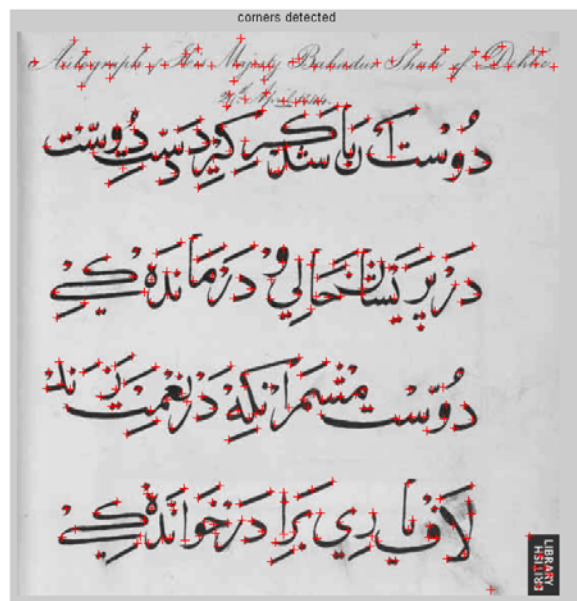 corners detected
Autograph of His Majesty Bahadur Shah of Dehlie
April
دوست آن باشد که گیرد دست دوست
در پریشان حالی و درمانده کی
دوست مشمر آنکه در نعمت زند
لاف یاری برادر خوانده کی
BRITISH
LIBRARY